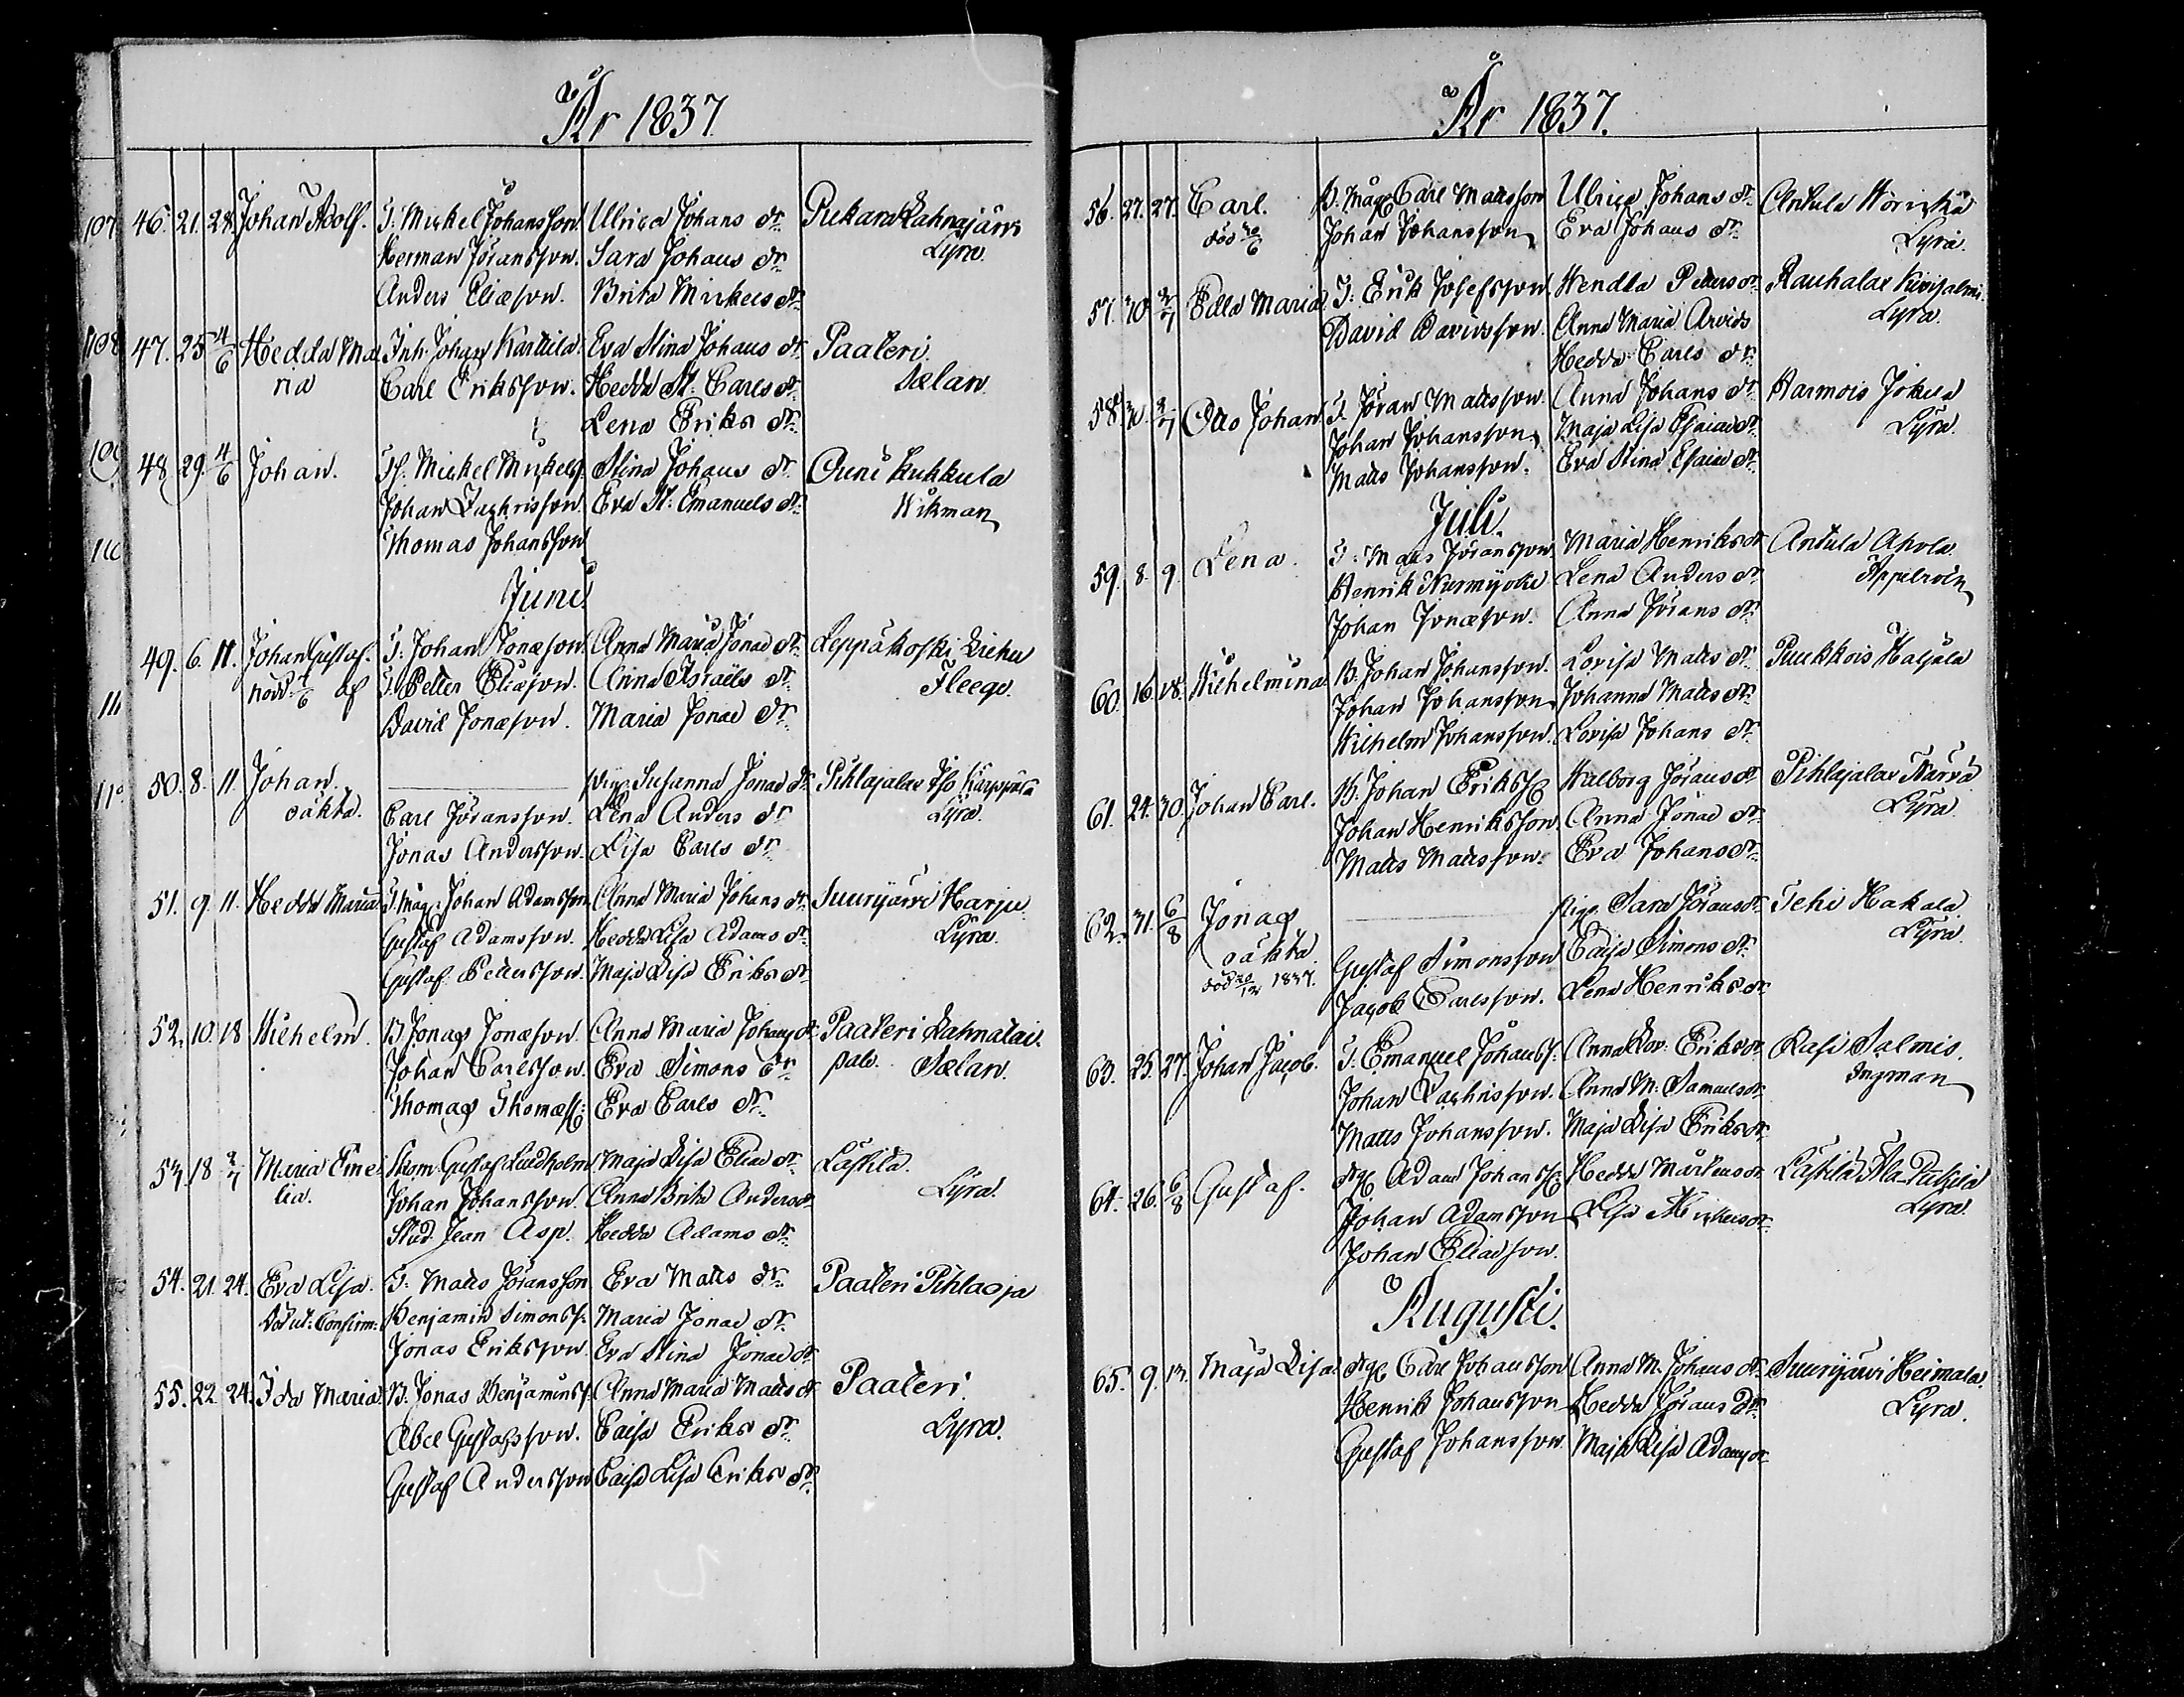 År 1837
107 46. 21. 28. Johan Adolf. T. Mickel Johansson Ulrica Johans dr. Pukara Lahnajärvi
Herman Jöransson. Sara Johans dr. Lyra.
Anders Eliæson. Brita Mickels dr.
108 47. 25 4/6 Hedda Ma Inh. Johan Karttila. Eva Stina Johans dr. Paateri.
ria Carl Eriksson. Hedda St. Carls dr. Sælan.
Lena Eriks dr.
109 48 29. 4/6 Johan. Mickel Mickelss. Stina Johans dr. Kukkula
Johan Zachrisson. Eva St. Emanuels dr. Wikman
110 Thomas Johansson
Junii
49. 6. 11. Johan Gustaf. T. Johan Jonæson. Anna Maria Jonæ dr. Leppäkoski Liehu
nöd. 7/6 af T. Petter Eliæson. Anna Israels dr. Fleege.
111 David Jonæson. Maria Jonæ dr.
50. 8. 11. Johan. Pig. Susanna Jonæ dr. Pihlajalax Iso Kärppälä
oäkta. Carl Jöransson. Lena Anders dr. Lyra.
Jonas Andersson. Lisa Carls dr.
51. 9. 11. Hedda Maria T. Måg. Johan Adamsson Anna Maria Johans dr. Suurijärvi Harju.
Gustaf Adamsson. Hedda Lisa Adams dr. Lyra.
Gustaf Pettersson. Maja Lisa Eriks dr.
52. 10. 18 Wilhelm. B. Jonas Jonæson. Anna Maria Johans dr. Paateri Lahnalai.
Johan Carlsson. Eva Simons dr. Sælan.
Thomas Thomæss. Eva Carls dr.
53. 18 2/7 Maria Eme Skom. Gustaf Lindholm Maja Lisa Eliæ dr. Laskila.
lia. Johan Johansson. Anna Brita Anders dr. Lyra.
Stud. Jean Asp. Hedda Adams dr.
54. 21. 24. Eva Lisa. T. Matts Jöransson Eva Matts dr. Paateri Pihlaoja
Död ut: Confirm: Benjamin Simonss. Maria Jonæ dr.
Jonas Eriksson. Eva Stina Jonæ dr.
55. 22 24. Ida Maria. B. Jonas Benjaminss. Anna Maria Matts dr. Paateri.
Abel Gustafsson. Caisa Eriks dr. Lyra.
Gustaf Andersson Caisa Lisa Eriks dr.
År 1837.
56. 27. 27. Carl. B. Måg Carl Mattsson Ulrica Johans dr. Antula
död 30/6 Johan Johansson Eva Johans dr. Lyra.
57. 30 2/7 Edla Maria T. Erik Josefsson. Hendla Petters dr. Rauhalax Kivisalmi.
David Davidsson. Anna Maria Arvids Lyra.
Hedda Carls dr.
58. 30. 2/7 Otto Johan T. Jöran Mattsson. Anna Johans dr. Harmois Jokela
Johan Johansson. Maja Lisa Esaiæ dr. Lyra.
Matts Johansson. Eva Stina Esaiæ dr.
Julii.
59. 8. 9. Lena. T. Matts Jöransson Maria Henriks dr. Antula Ahola
Henrik Nurmijoki Lena Anders dr. Appelroth
Johan Jonæson. Anna Jörans dr.
60. 16. 18. Wilhelmina B. Johan Johansson. Lovisa Matts dr. Puukkois Matjala
Johan Johansson Johanna Matts dr.
Wilhelm Johansson. Lovisa Johans dr.
61. 24. 30. Johan Carl. B. Johan Erikss. Walborg Jörans dr. Pihlajalax Narva
Johan Henriksson. Anna Jonæ dr. Lyra
Matts Mattsson. Eva Johans dr.
62. 31. 6/8 Jonas Pig. Sara Jörans dr. Tehi Hakala
oäkta Gustaf Simonsson Caisa Simons dr. Lyra.
död 20/12 1837. Jacob Carlsson. Lena Henriks dr.
63. 25. 27. Johan Jacob. T. Emanuel Johanss. Anna Lov. Eriks dr. Rasi Salmis.
Johan Zachrisson. Anna M. Samuels dr. Ingman
Matts Johansson. Maja Lisa Eriks dr.
64. 26. 6/8 Gustaf. Adam Johanss. Hedda Mårtens dr. Läskilä Ala Putkela
Johan Adamsson Lisa Mickels dr. Lyra.
Johan Eliæson.
Augusti.
65. 9. 13. Maja Lisa Carl Johansson Anna M. Johans dr. Suurijärvi Heimala.
Henrik Johansson Hedda Jörans dr. Lyra.
Gustaf Johansson Maja Lisa Adams dr.